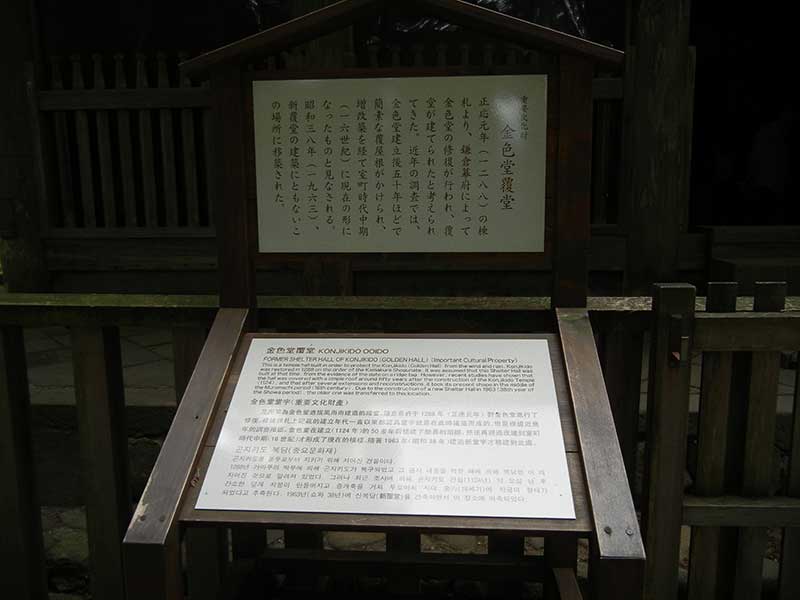 重要文化財
金色堂覆堂
正応元年（一二八八）の棟
札より、鎌倉幕府によって
金色堂の修復が行われ、覆
堂が建てられたと考えられ
てきた。近年の調査では、
金色堂建立後五十年ほどで
簡素な覆屋根がかけられ、
増改築を経て室町時代中期
（一六世紀）に現在の形に
なったものと見なされる。
昭和三八年（一九六三）、
新覆堂の建築にともないこ
の場所に移築された。
金色堂覆堂 KONJIKIDO OOIDO
FORMER SHELTER HALL OF KONJIKIDO (GOLDEN HALL) (Important Cultural Property)
This is a temple hall built in order to protect the Konjikido (Golden Hall) from the wind and rain. Konjikido
was restored in 1288 on the order of the Kamakura Shogunate. It was assumed that this Shelter Hall was
built at that time, from the evidence of the date on a ridge tag. However, recent studies have shown that
the hall was covered with a simple roof around fifty years after the construction of the Konjikido Temple
(1124), and that after several extensions and reconstructions, it took its present shape in the middle of
the Muromachi period (16th century). Due to the construction of a new Shelter Hall in 1963 (38th year of
the Showa period), the older one was transferred to this location.
金色堂堂宇（重要文化財產）
1288
(1124 年) 的 50
(16 世紀) 才形成了現在的模樣 1963 年
곤지키도 복당(중요문화재)
곤지키도를 지키기 위해 지어진 건물이다.
1288년 가마쿠라 막부에 의해 곤지키도가